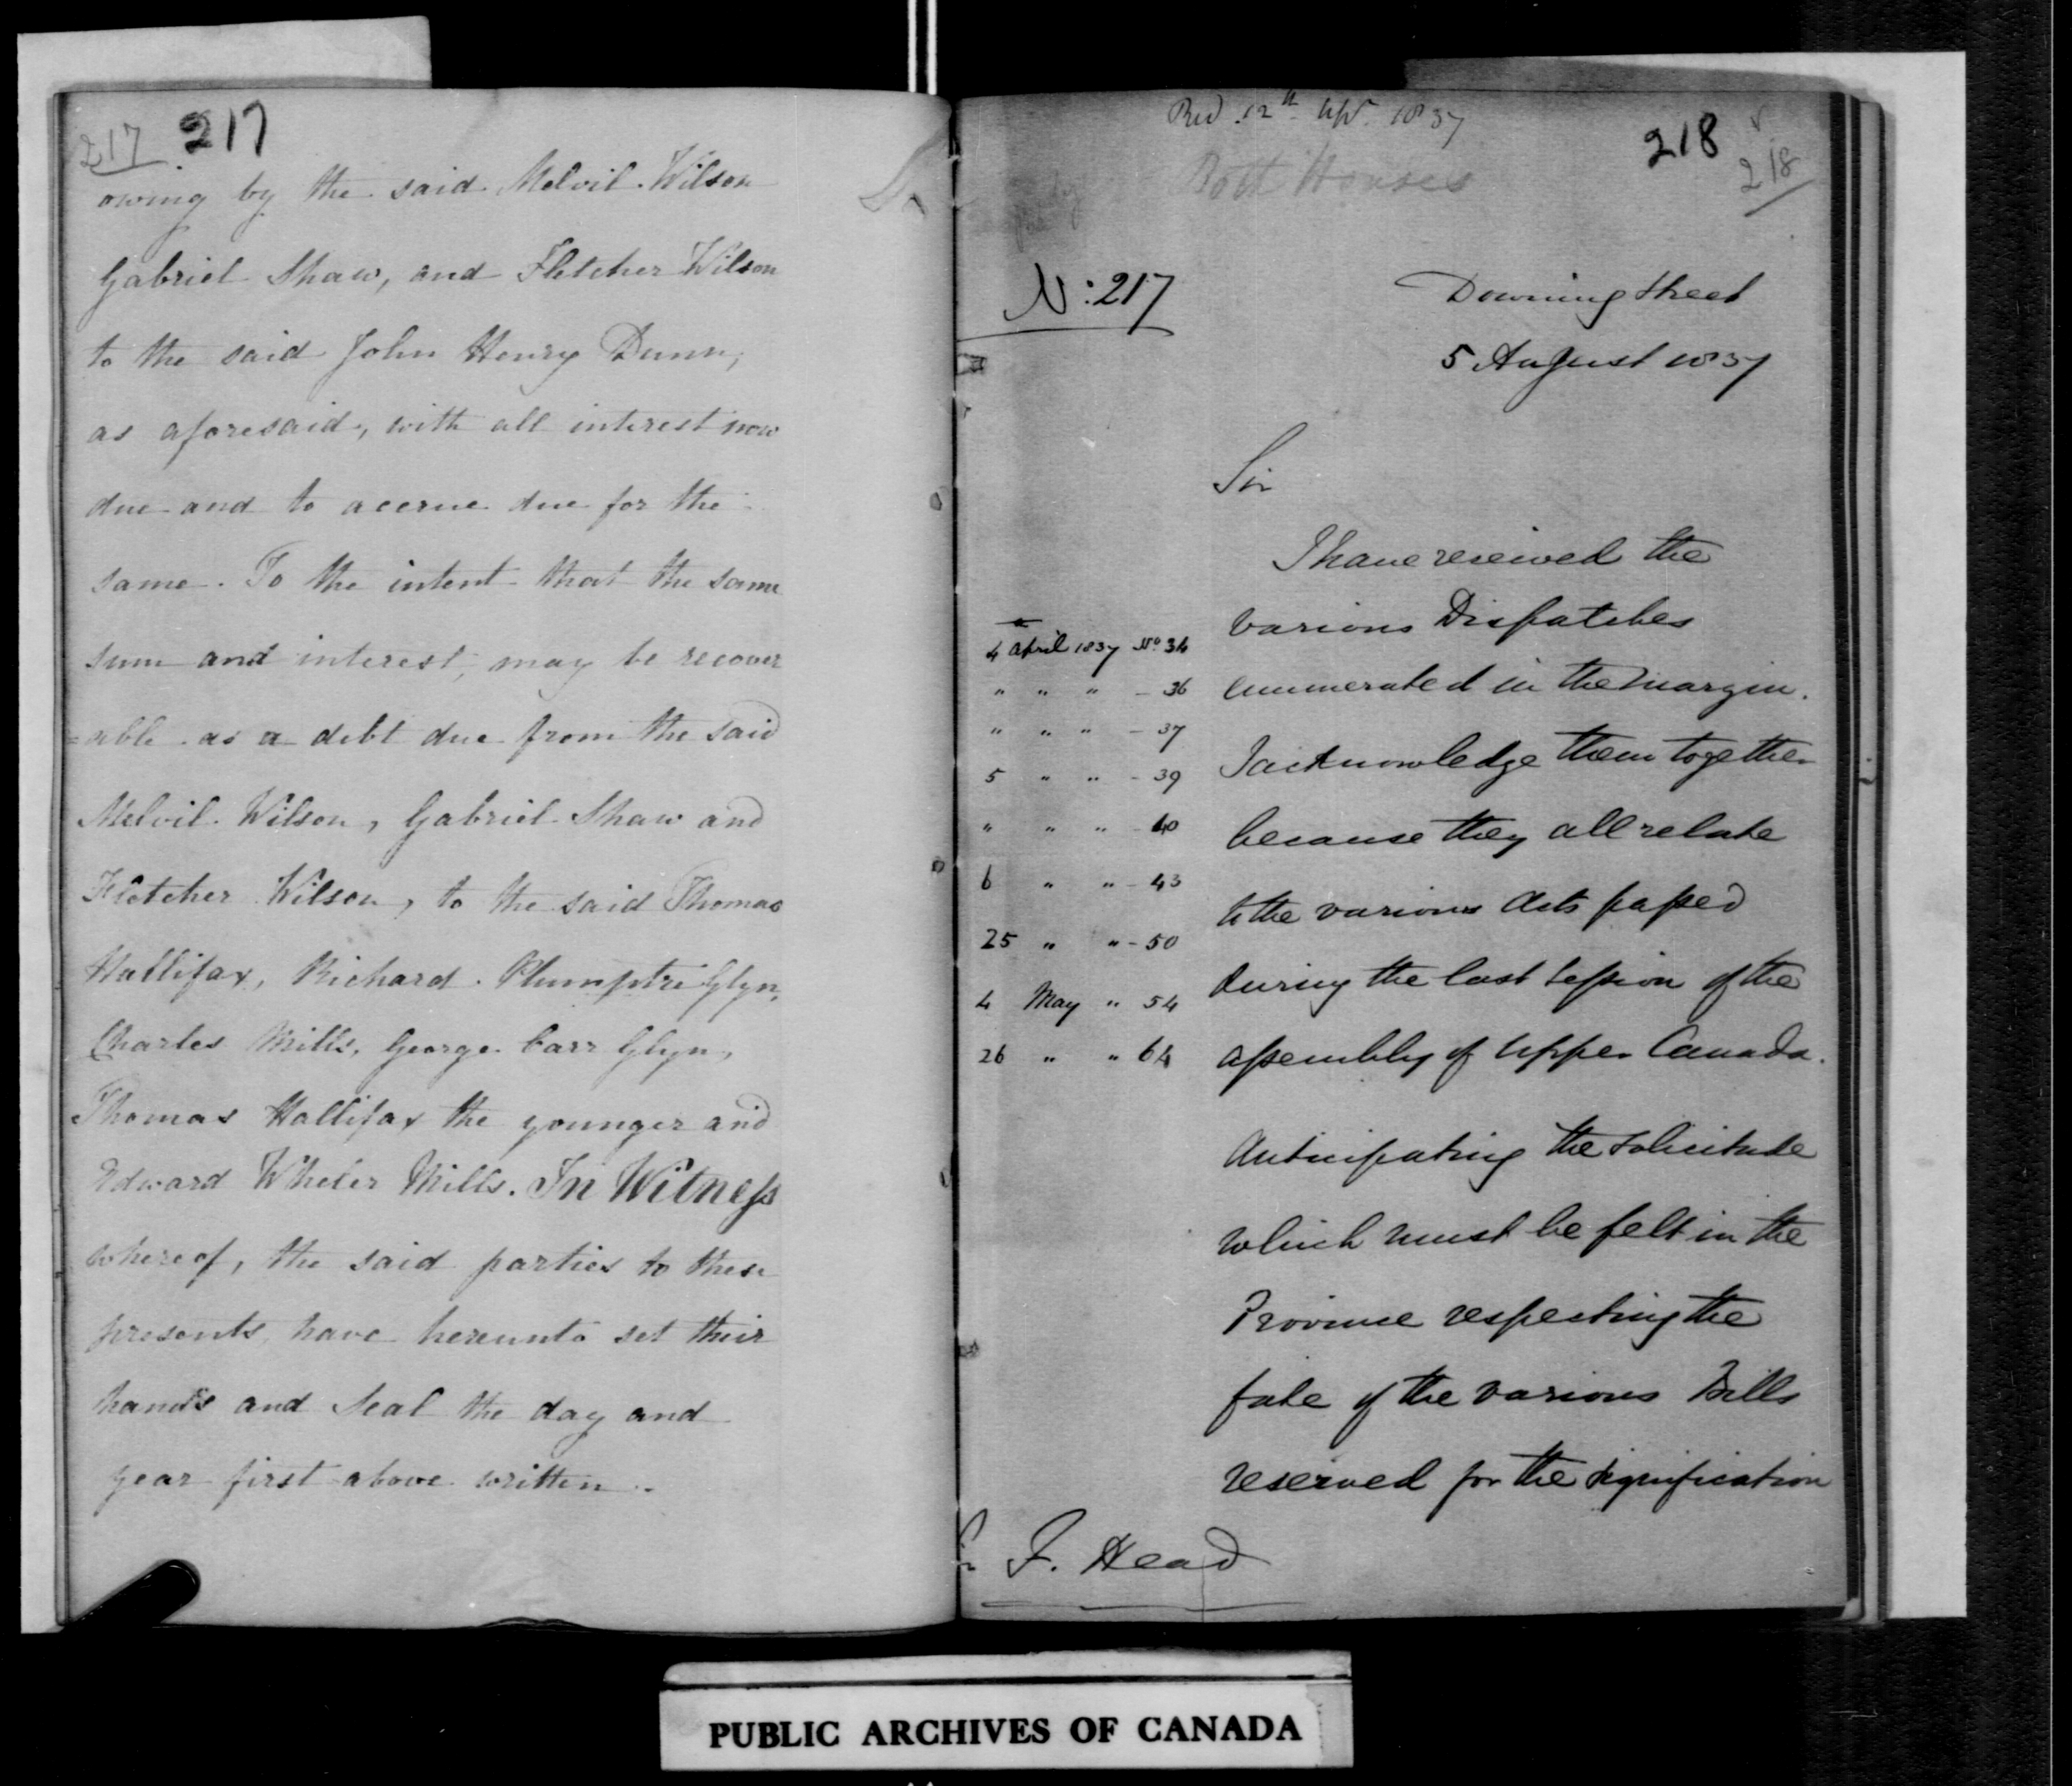 217 217
owing by the said Melvil Wilson
Gabriel Shaw, and Fletcher Wilson
to the said John Henry Dunn,
as aforesaid, with all interest now
due and to accrue due for the
same. To the intent that the same
sum and interest, may be recover
=able as a debt due from the said
Melvil Wilson, Gabriel Shaw and
Fletcher Wilson, to the said Thomas
Hallifax, Richard Plumptre Glyn,
Charles Mills, George Carr Glyn,
Thomas Hallifax the younger and
Edward Wheler Mills. In Witness
whereof, the said parties to these
presents have hereunto set their
hands and Seal the day and
year first above written.
Red. 12th 1837
218
218
Both Houses
No: 217
Downing Street
5 August 1837
Sir
I have received the
various Dispatches
enumerated in the margin.
I acknowledge them together
because they all relate
to the various Acts passed
during the last Session of the
Assembly of Upper Canada.
Anticipating the solicitude
which must be felt in the
Province respecting the
fate of the various Bills
reserved for the signification
4 April 1837 No 34
" " " - 36
" " " - 37
5 " " - 39
" " " - 40
6 " " - 43
25 " " - 50
4 May " 54
26 " " 64
F. Head
PUBLIC ARCHIVES OF CANADA